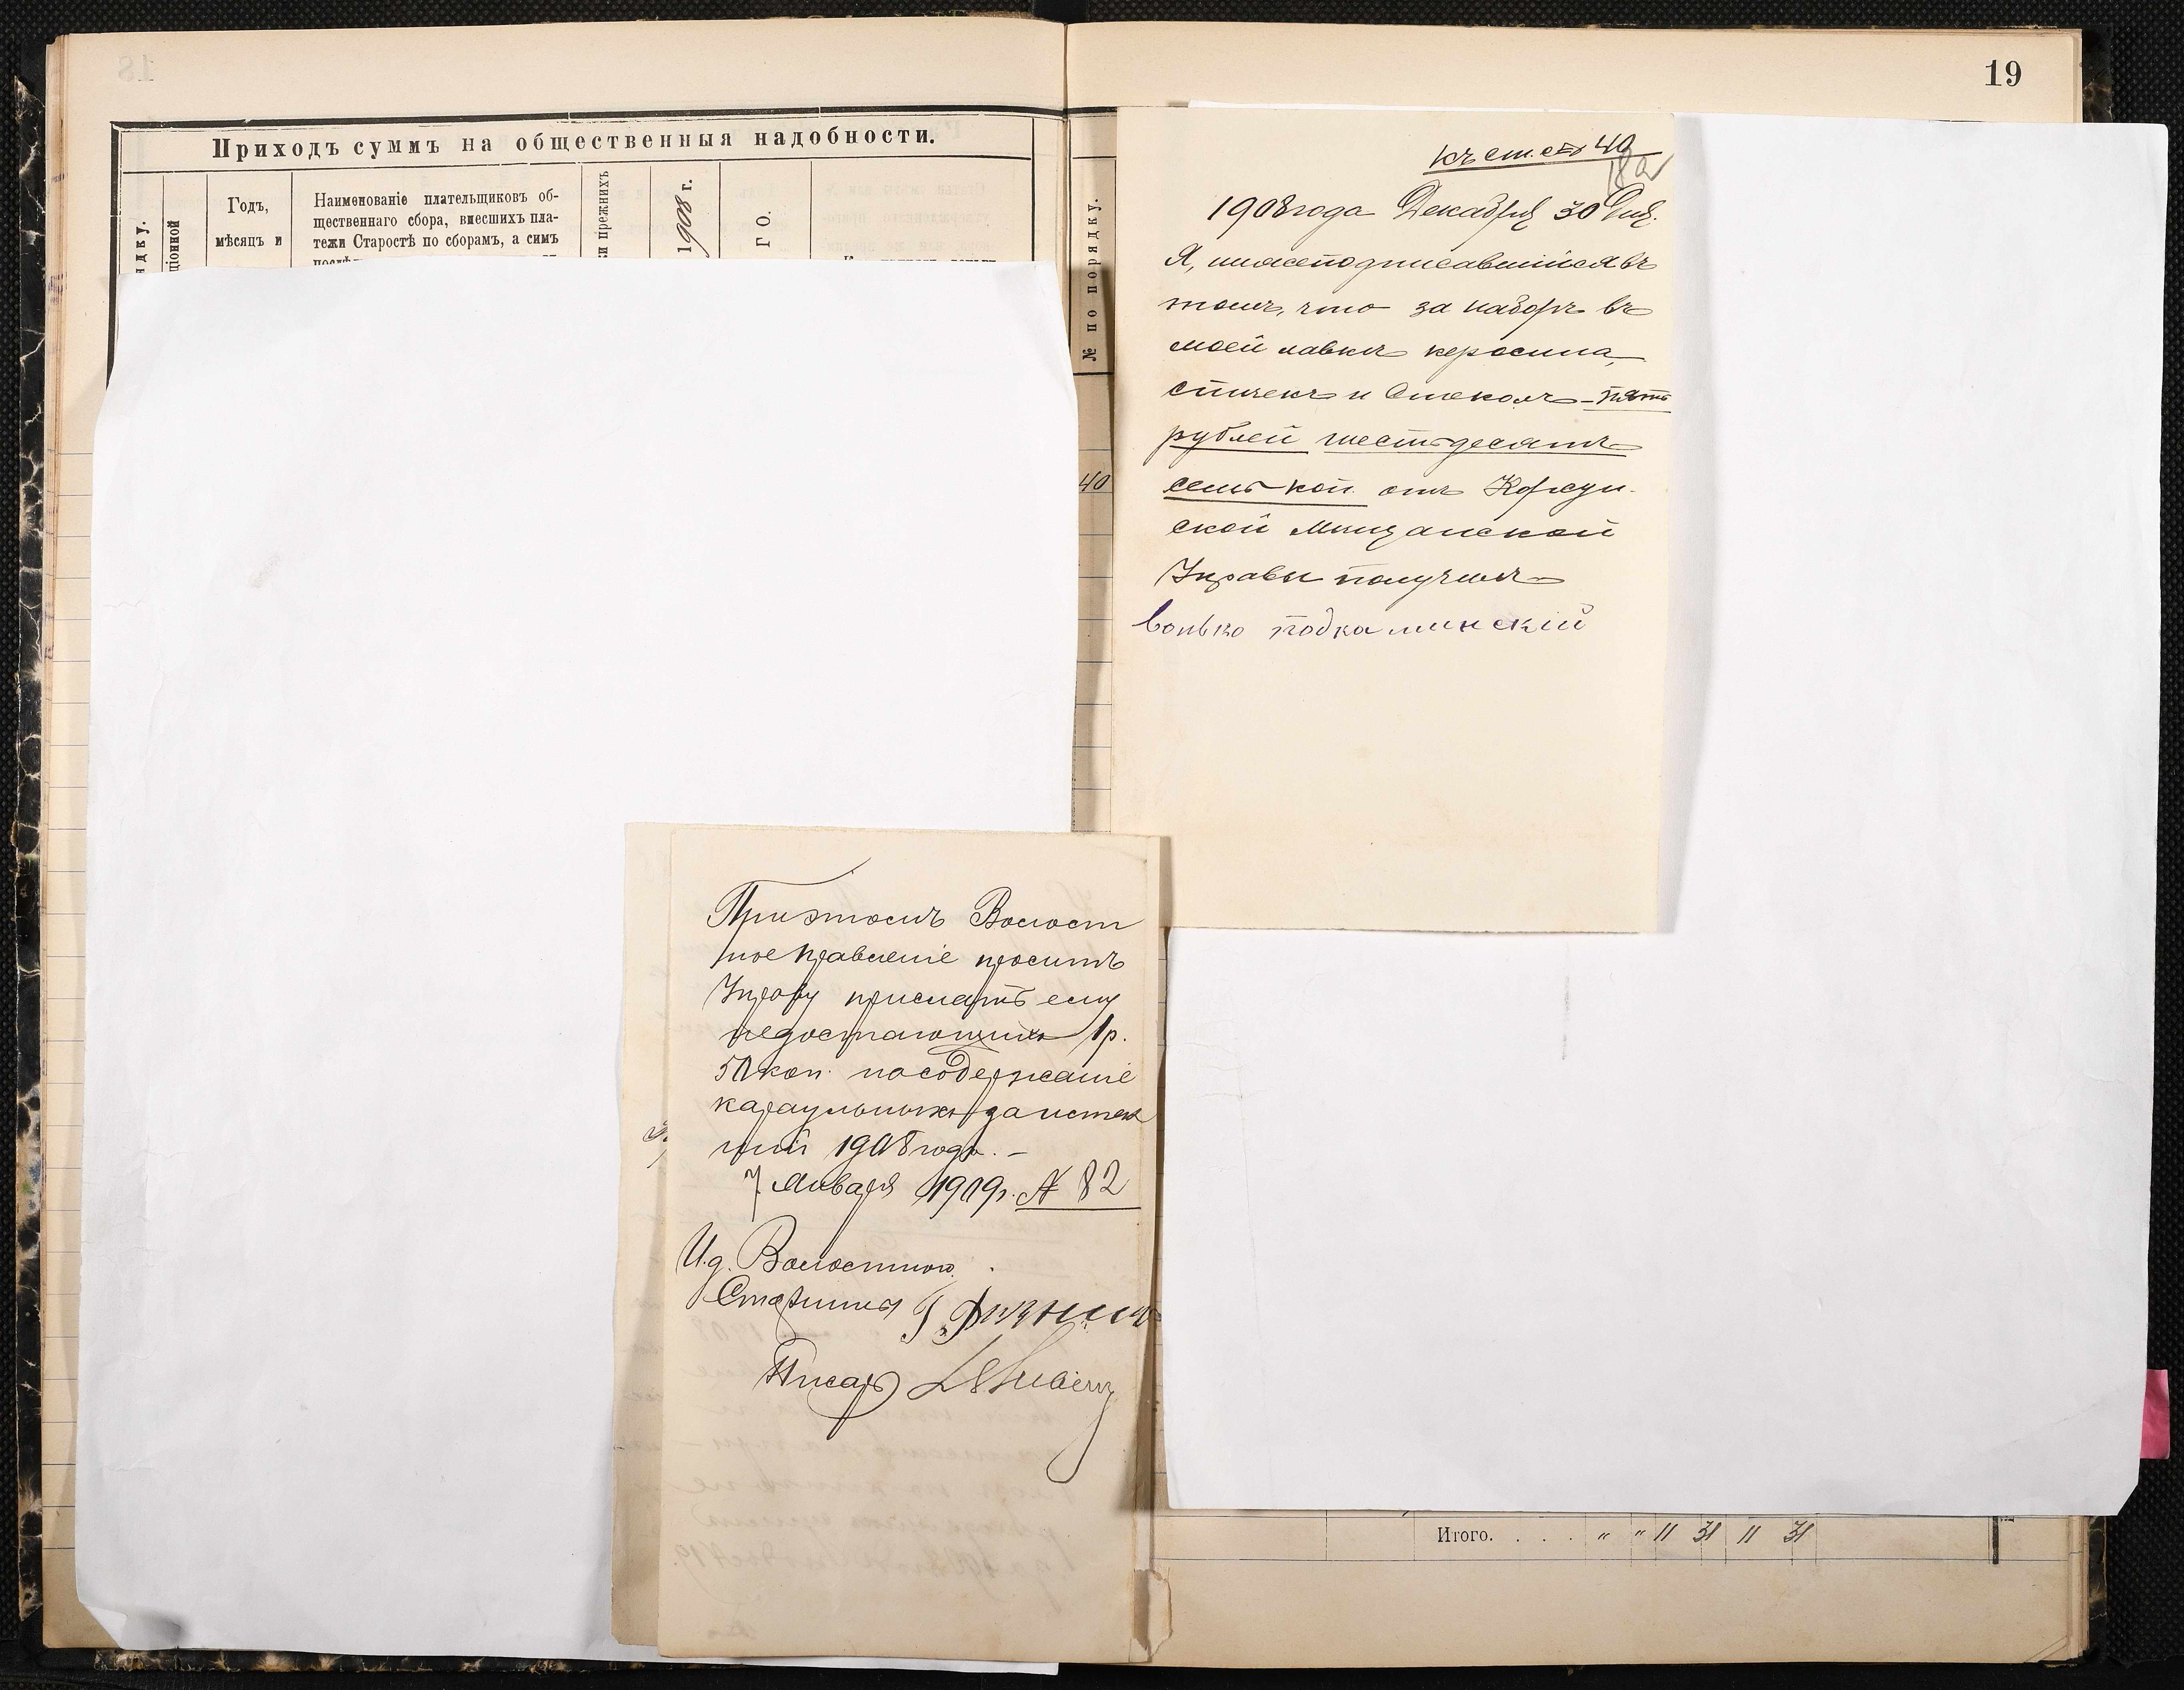 18
Приходъ суммъ на общественныя надобности.
Годъ,
мѣсяцъ и
Наименованіе плательщиковъ об-
щественнаго сбора, внесшихъ пла-
тежи Старостѣ по сборамъ, а симъ
прежнихъ
1908 г.
Г О.
19
№ по порядку.
40
къ ст. 40
18а
1908 года Декабря 30 дня.
Я, нижеподписавшійся въ
томъ, что за наборъ въ
моей лавкѣ керосина,
спичекъ и стеколъ – пять
рублей шестьдесятъ
семь коп. отъ Корсун-
ской Мѣщанской
Управы получилъ
подкаминскій
При этомъ Волост
ное Правленіе проситъ
Управу прислать ему
недостающихъ 1 р.
50 коп. на содержаніе
караульныхъ за истек
шій 1908 годъ. –
7 Января 1909 г. № 82
И.д. Волостного
Старшины
Писарь
Итого. . . . " " 11 31 11 31